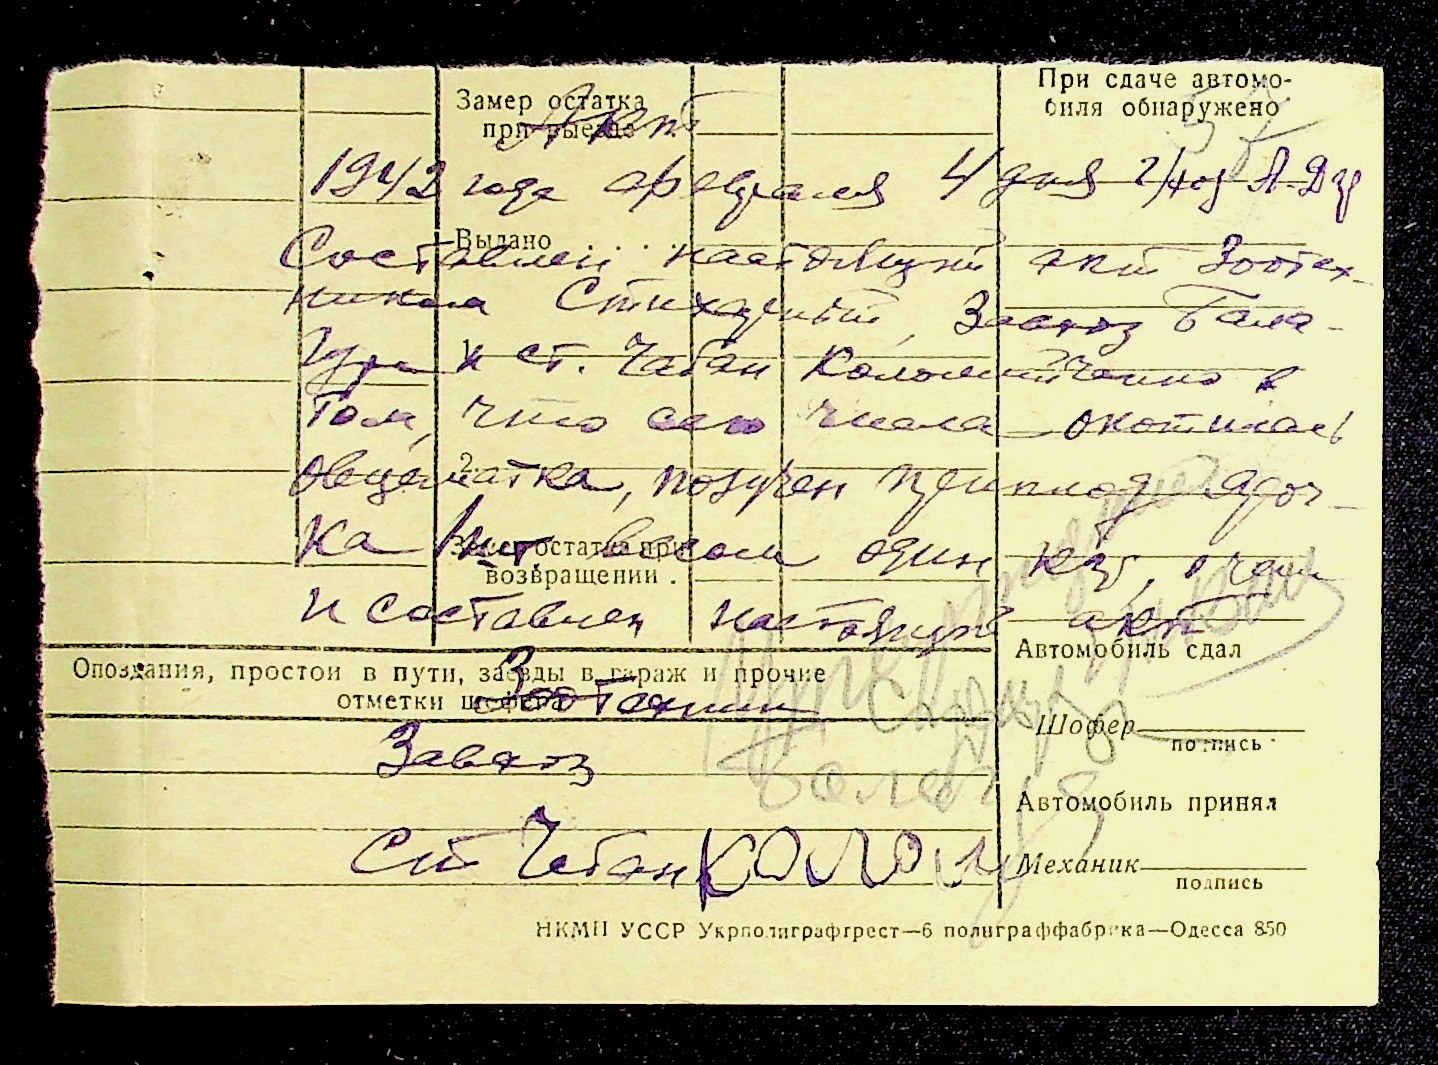 Замер остатка
при выезде
При сдаче автомо-
биля обнаружено
Акт
1942 года февраля 4 дня
Выдано
Составлен настоящий акт Зоотех-
ником Завхоз Бала-
1.
и ст. Чабан Коломийченко в
том, что сего числа окотилась
2.
овцематка, получен приплод яроч-
ка 1 шт. весом один кгр, о чем
Замер остатка при
возвращении .
и составлен настоящий акт
Автомобиль сдал
Опоздания, простои в пути, заезды в гараж и прочие
отметки шофера
Зоотехник
Шофер
подпись
Завхоз
Автомобиль принял
Ст Чабан Колом
Механик
подпись
НКМП УССР Укрполиграфтрест—6 полиграффабрика—Одесса 850